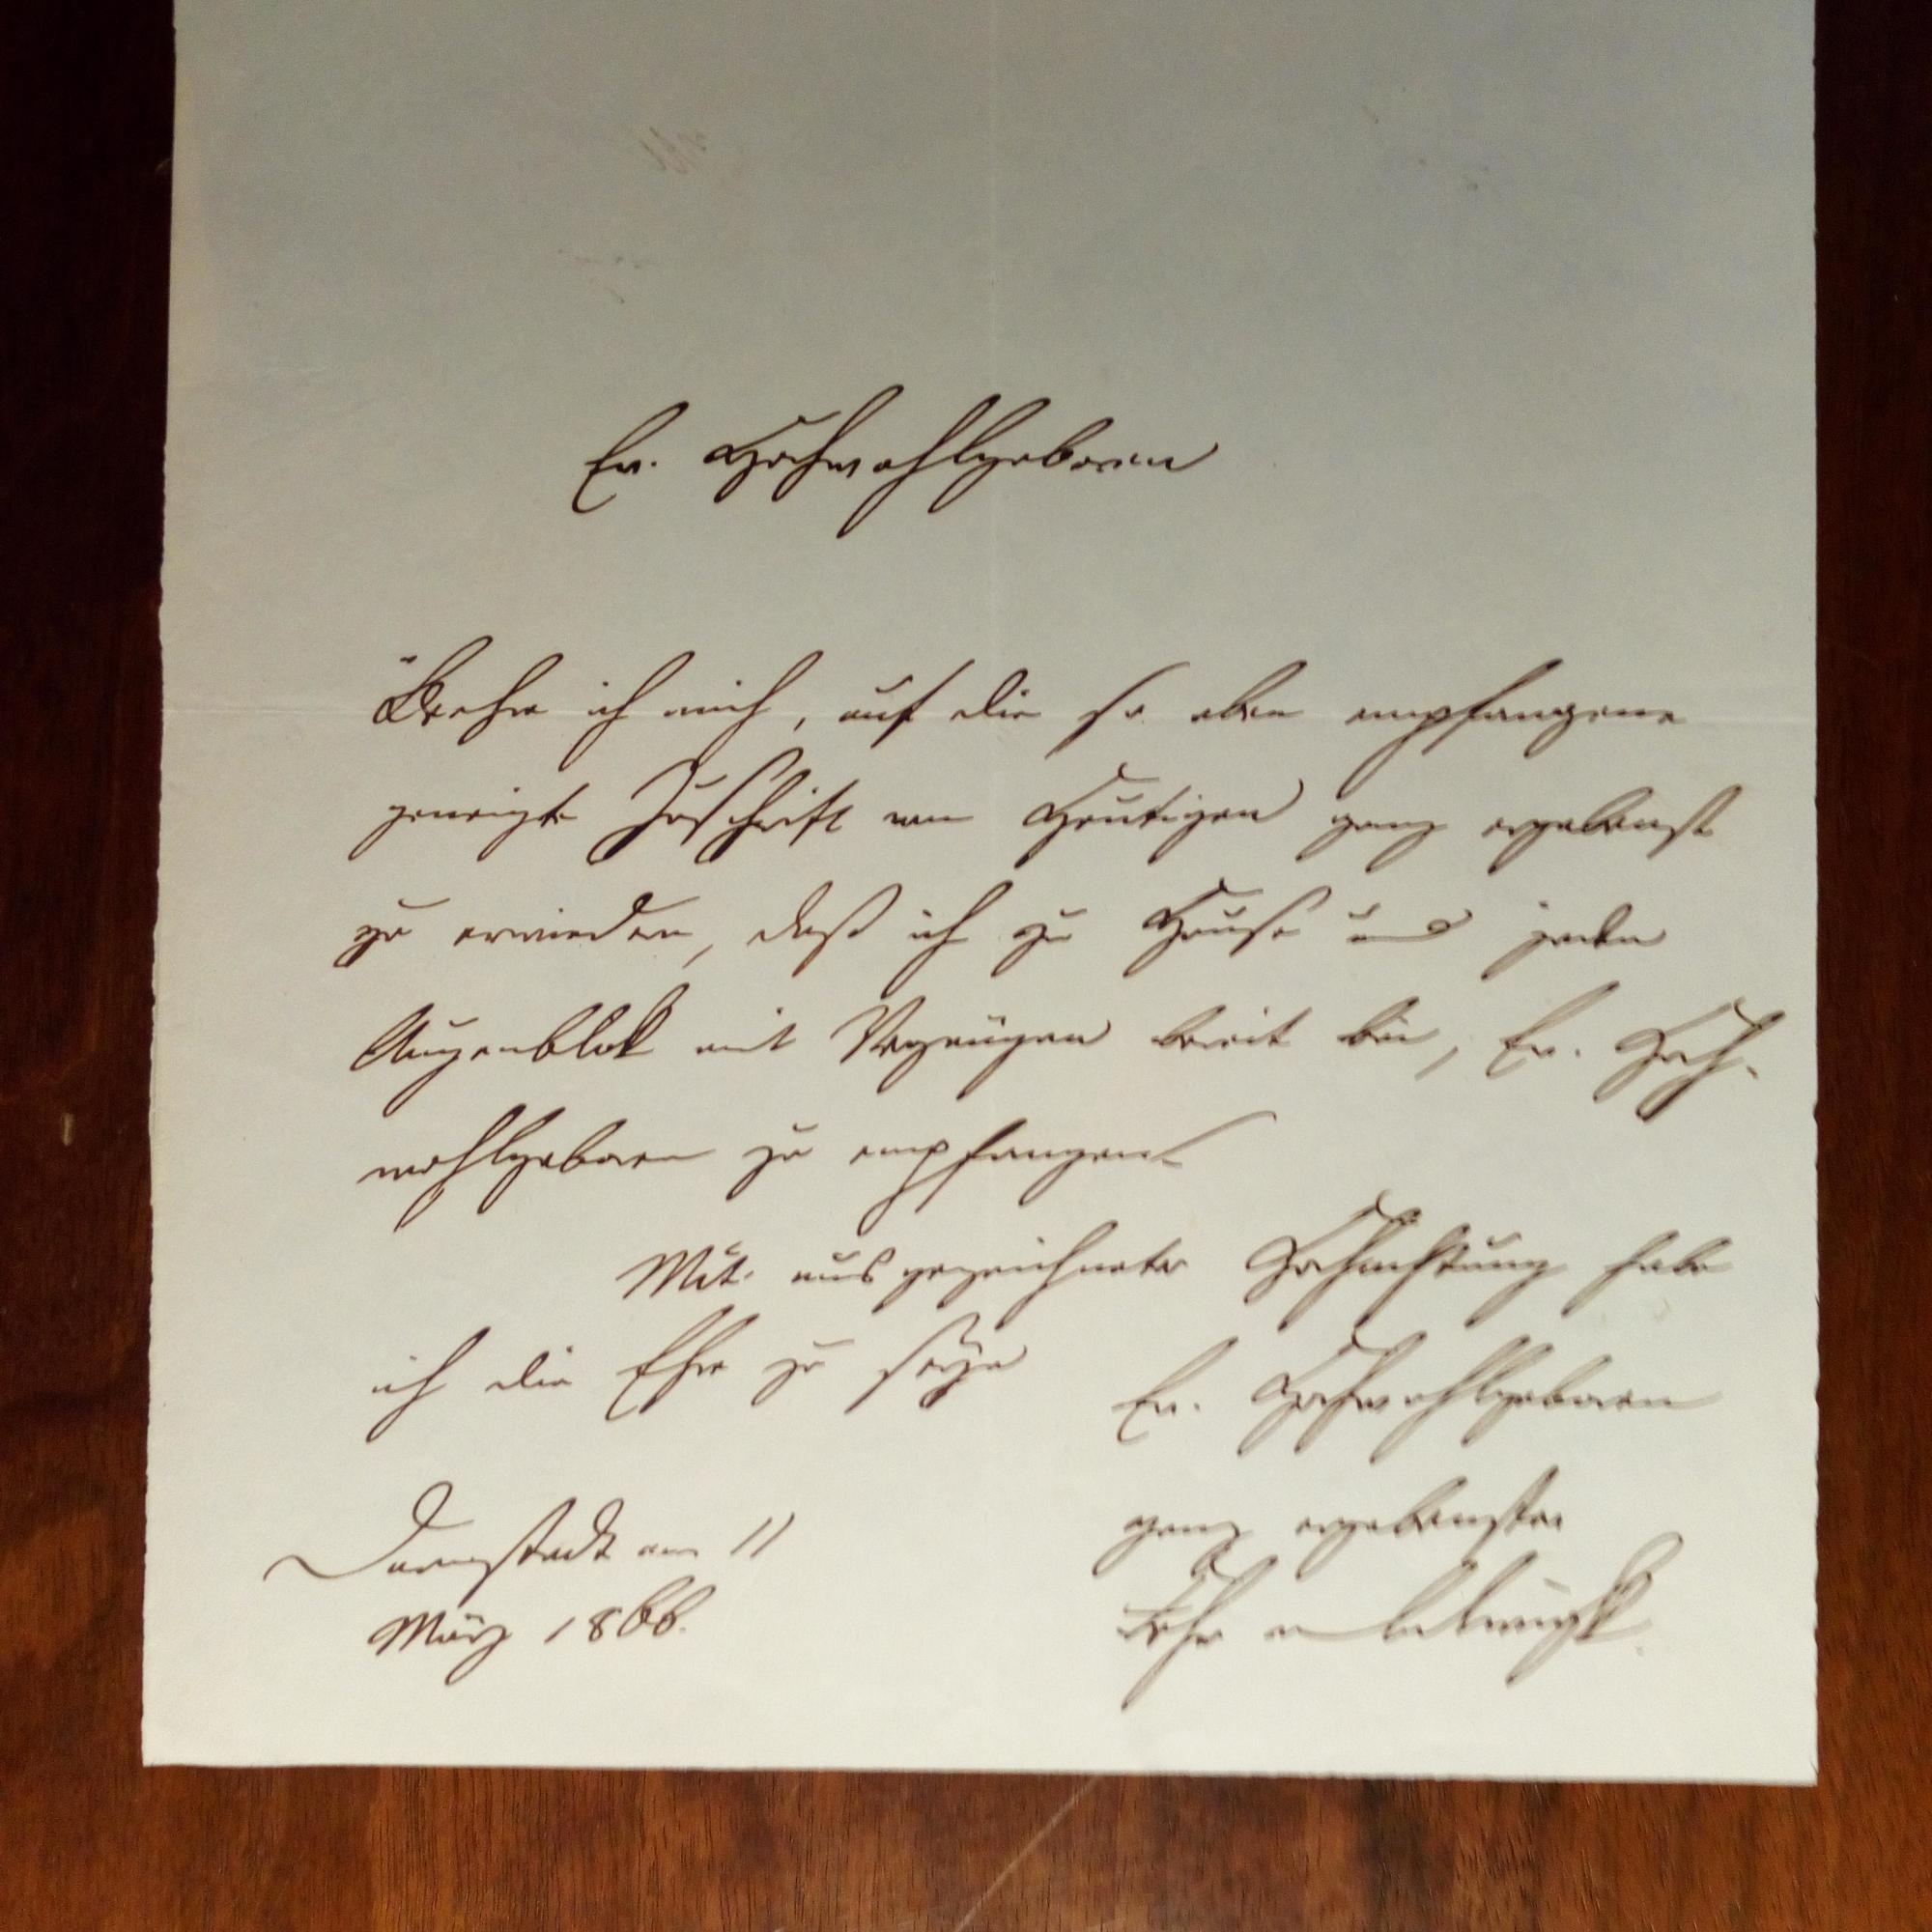 Ew. Hochwohlgeboren
Beehre ich mich, auf die so eben empfangene
geneigte Zuschrift vom Heutigen ganz ergebenst
zu erwiedern, daß ich zu Hause und jeden
Augenblick mit Vergnügen bereit bin, Ew. Hoch-
wohlgeboren zu empfangen.
Mit ausgezeichneter Hochachtung habe
ich die Ehre zu seyn
Ew. Hochwohlgeboren
ganz ergebenster
Darmstadt am 11
März 1866.